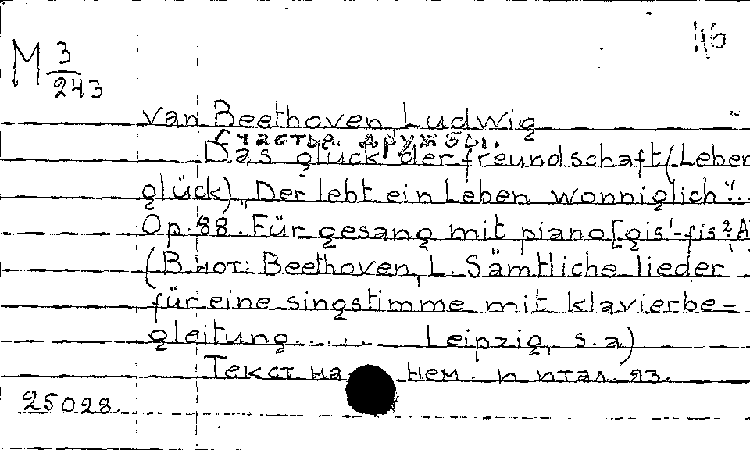 46
M 3/243
van Beethoven Ludwig
Счастье дружбы.
Das glück der freundschaft (Leben
glück) „Der lebt ein Leben wonniglich".
Op. 88. Für gesang mit piano [gis¹-fis² A
(В нот: Beethoven, L. Sämtliche lieder
für eine singstimme mit klavierbe-
gleitung...... Leipzig, s. a)
Текст на нем. и итал. яз.
25028.